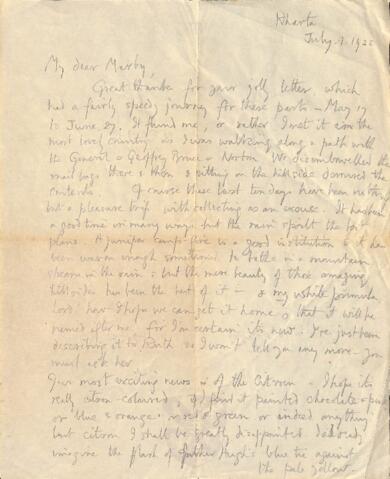 Kharta
July 7. 192
My dear Marby,
Great thanks for your jolly letter, which
had a fairly speedy journey for these parts - May 19
to June 27. It found me, or rather I met it in the
most lovely country as I was walking along a path with
the General & Geoffrey Bruce & Norton. We disembowelled the
mail bags there & then & sitting on the hillside devoured the
contents. Of course these last ten days have been nothing
but a pleasure trip with collecting as an excuse. It has been
a good time in many ways, but the rain spoilt the
plans. A juniper camp-fire is a good institution & it has
been warm enough sometimes to bathe in a mountain
stream in the rain: but the mere beauty of these amazing
hillsides has been the best of it - & my white primula
Lord! how I hope we can get it home & that it will be
named after me for I'm certain it's new. I've just been
describing it to Ruth so I won't tell you any more - you
must ask her
Your most exciting news is of the Citroen. I hope it's
really citron-coloured; if I find it painted chocolate &
or blue & orange or red & green or indeed anything
but citron I shall be greatly disappointed.
imagine the flash of Hugh's blue tie against
the pale yellow.